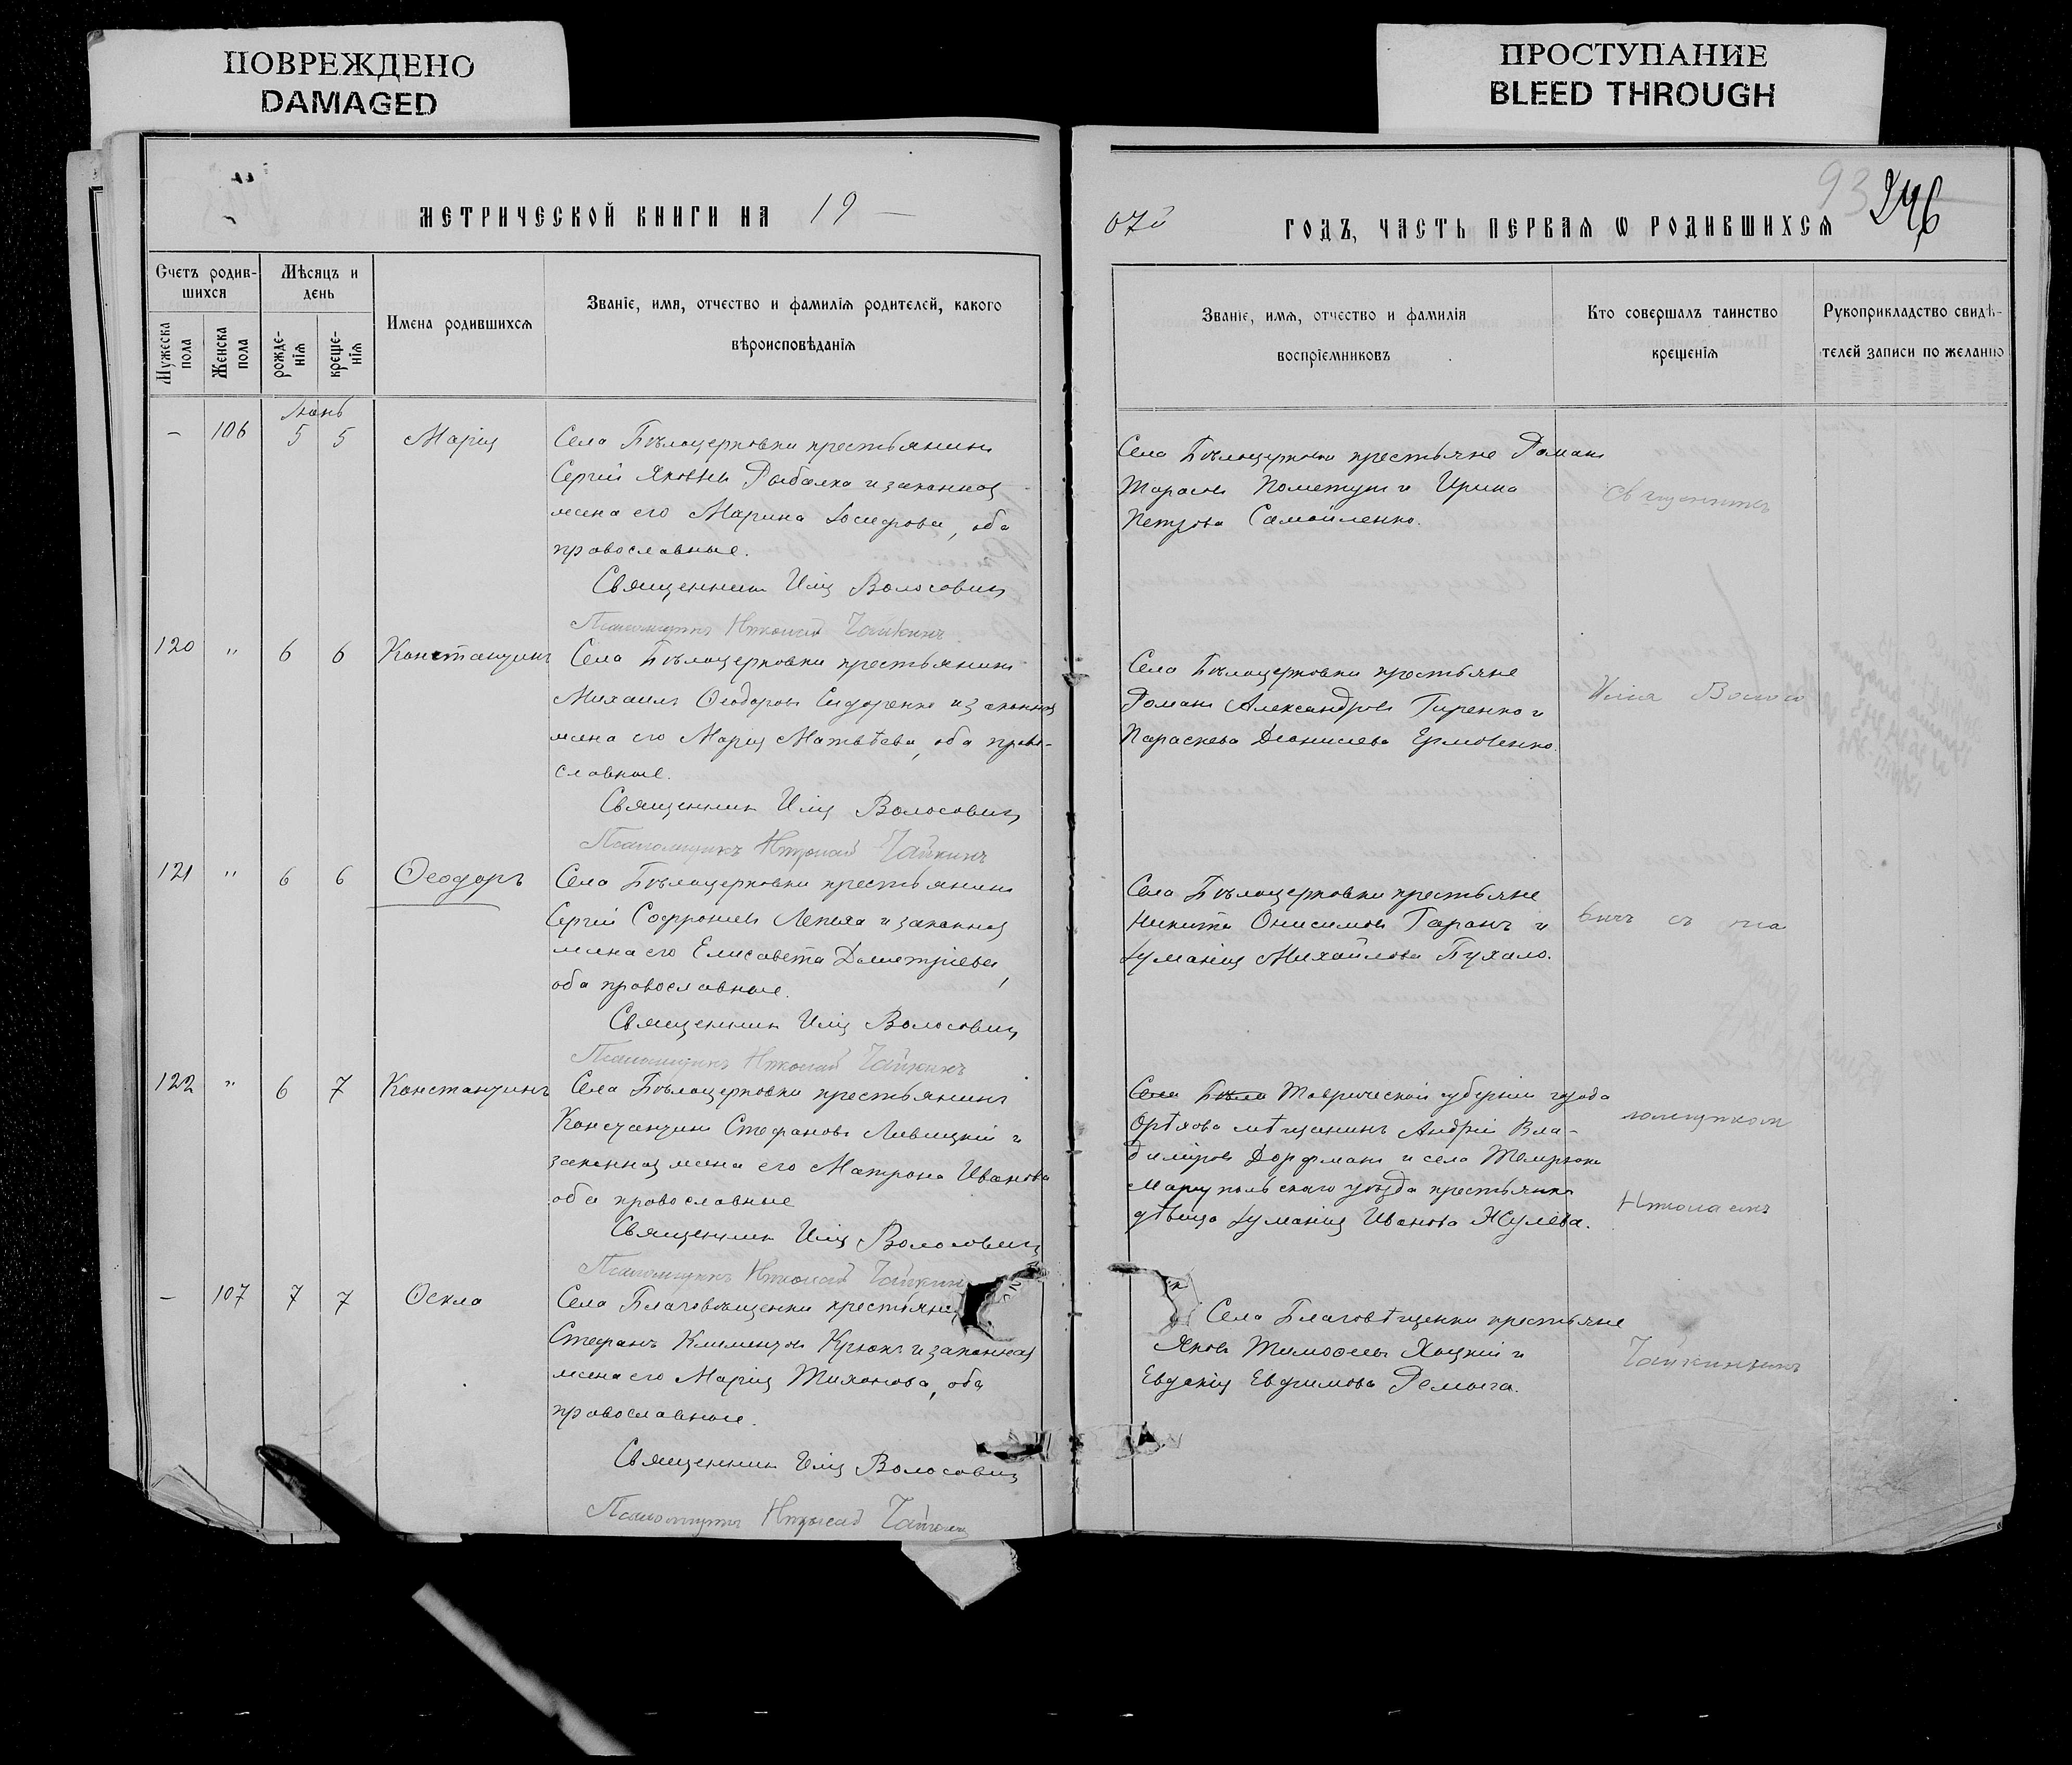 ПОВРЕЖДЕНО
DAMAGED
ПРОСТУПАНИЕ
BLEED THROUGH
МЕТРИЧЕСКОЙ КНИГИ НА 19
07й ГОДЪ, ЧАСТЬ ПЕРВАЯ Ѡ РОДИВШИХСЯ
93 246
Счетъ родив-
шихся
Мужеска пола
Женска пола
Мѣсяцъ и
день
рожде-
нія
креще-
нія
Имена родившихся
Званіе, имя, отчество и фамилія родителей, какого
вѣроисповѣданія
Званіе, имя, отчество и фамилія
воспріемниковъ
Кто совершалъ таинство
крещенія
Рукоприкладство свидѣ-
телей записи по желанію
Іюнь
– 106 5 5 Марія
Села Бѣлоцерковки крестьянинъ
Сергій Яковлевъ Рыбалка и законная
жена его Марина Іосифова, оба
православные.
Священникъ Илія Волосовичъ
Псаломщикъ Николай Чайкинъ
Села Бѣлоцерковки крестьяне Романъ
Тарасовъ Пометунъ и Ирина
Петрова Самойленко.
Священникъ
120 " 6 6 Константинъ
Села Бѣлоцерковки крестьянинъ
Михаилъ Ѳеодоровъ Сидоренко и законная
жена его Марія Матвѣева, оба право-
славные.
Священникъ Илія Волосовичъ
Псаломщикъ Николай Чайкинъ
Села Бѣлоцерковки крестьяне
Романъ Александровъ Гиренко и
Параскева Діонисіева Ермоленко.
Илія Волосо
121 " 6 6 Ѳеодоръ
Села Бѣлоцерковки крестьянинъ
Сергій Софроніевъ Лепяха и законная
жена его Елисавета Димитріева,
оба православные.
Священникъ Илія Волосовичъ
Псаломщикъ Николай Чайкинъ
Села Бѣлоцерковки крестьяне
Никита Онисимовъ Гаранъ и
Іуліанія Михайлова Пухало.
вичъ съ пса
122 " 6 7 Константинъ
Села Бѣлоцерковки крестьянинъ
Константинъ Стефановъ Ливицкій и
законная жена его Матрона Иванова
оба православные
Священникъ Илія Волосовичъ
Псаломщикъ Николай Чайкинъ
Села Бѣло Таврической губерніи города
Орѣхова мѣщанинъ Андрей Вла-
диміровъ Дорфманъ и села Темрюкъ
Маріупольскаго уѣзда крестьянка
дѣвица Іуліанія Иванова Жулева.
ломщикомъ
Николаемъ
– 107 7 7 Ѳекла
Села Благовѣщенки крестьянинъ
Стефанъ Климентовъ Крюкъ и законная
жена его Марія Тихонова, оба
православные.
Священникъ Илія Волосовичъ
Псаломщикъ Николай Чайкинъ
Села Благовѣщенки крестьяне
Яковъ Тимоѳеевъ Яцкій и
Евдокія Евфимова Ремыга.
Чайкинымъ